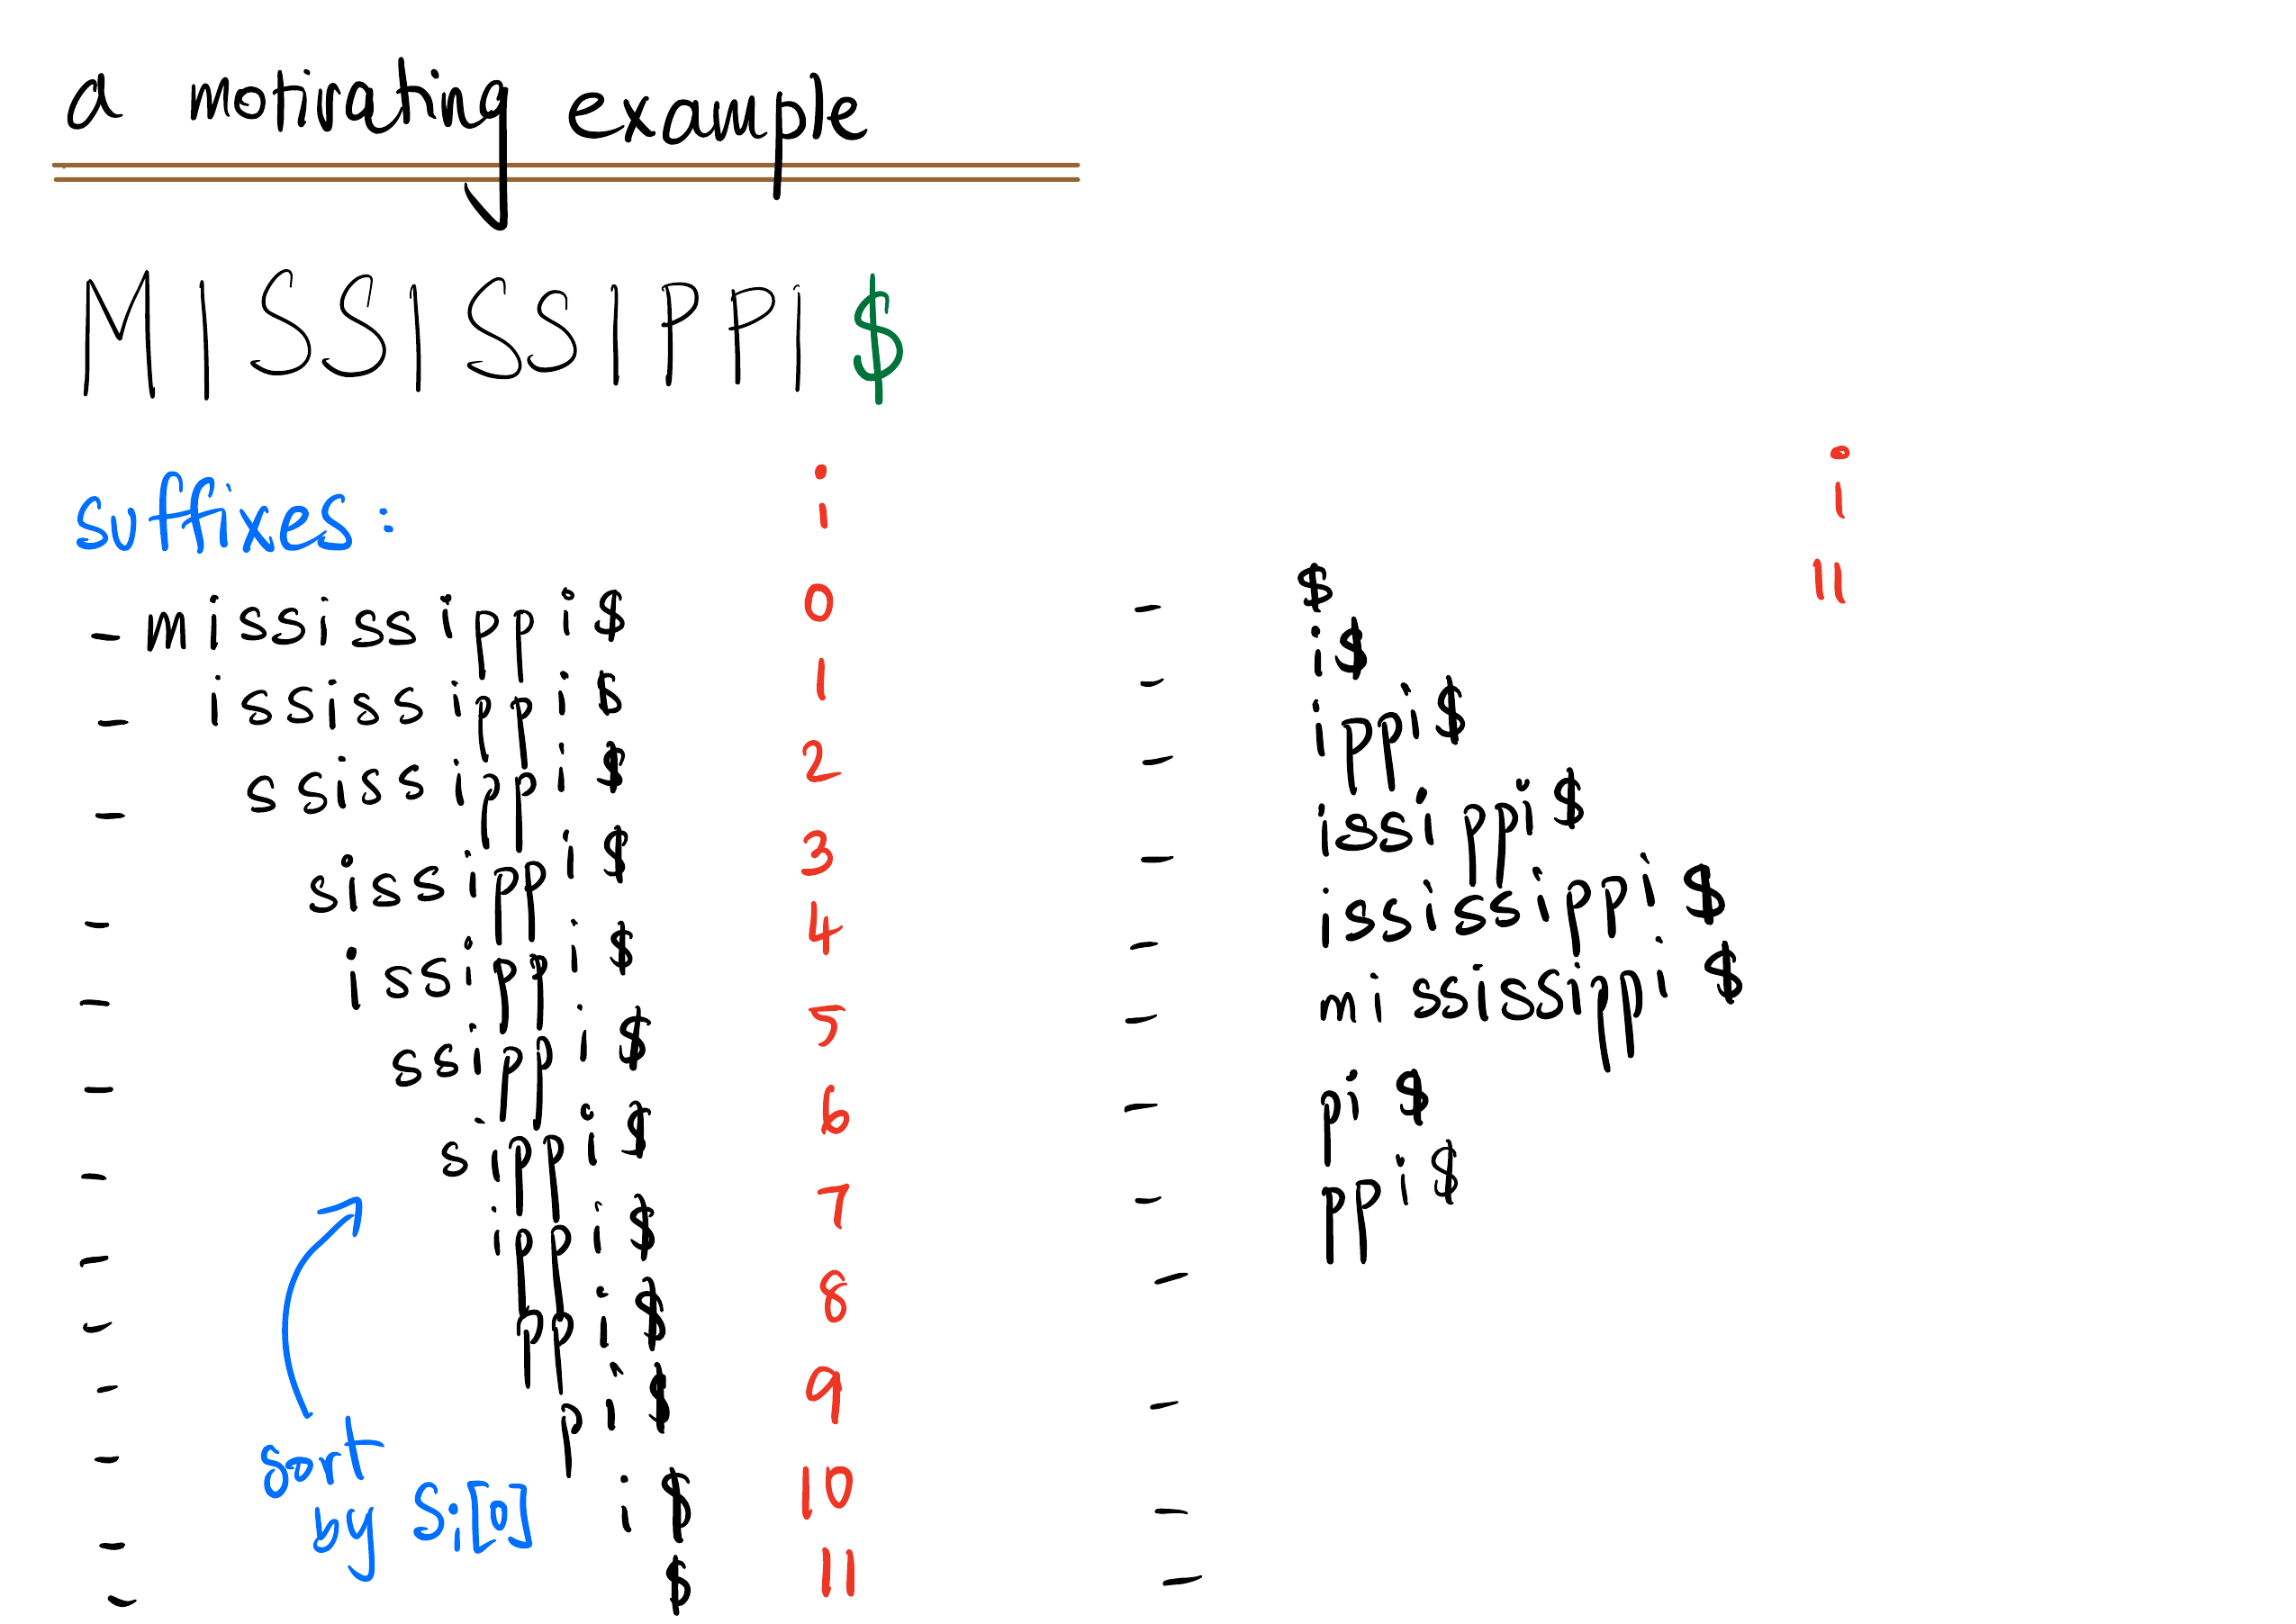 a motivating example
MISSISSIPPI$
suffixes:
i
- mississippi$ 0
- ississippi$ 1
- ssissippi$ 2
- sissippi$ 3
- issippi$ 4
- ssippi$ 5
- sippi$ 6
- ippi$ 7
- ppi$ 8
- pi$ 9
- i$ 10
- $ 11
sort
by Si[0]
i
- $ 11
- i$
- ippi$
- issippi$
- ississippi$
- mississippi$
- pi$
- ppi$
-
-
-
-